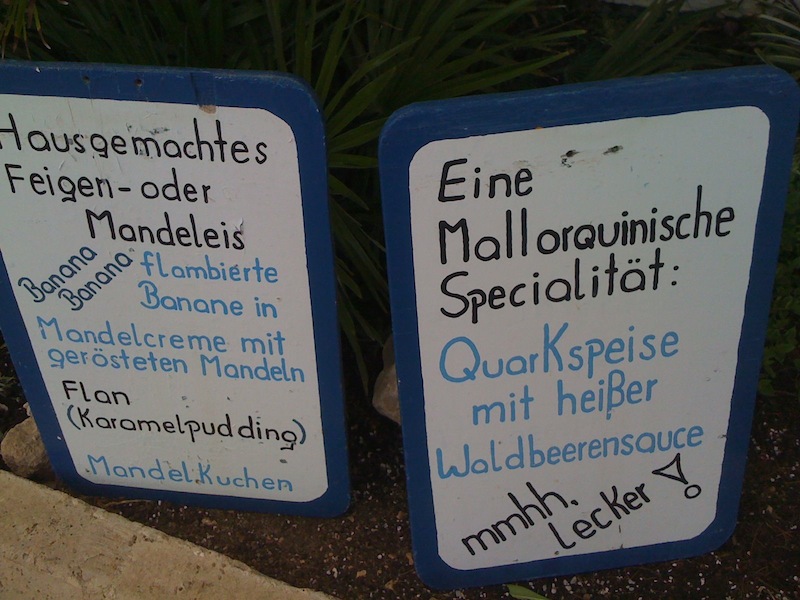 Hausgemachtes
Feigen- oder
Mandeleis
Banana
Banana
flambierte
Banane in
Mandelcreme mit
gerösteten Mandeln
Flan
(Karamelpudding)
Mandel.Kuchen
Eine
Mallorquinische
Specialität:
Quarkspeise
mit heißer
Waldbeerensauce
mmhh.
lecker!